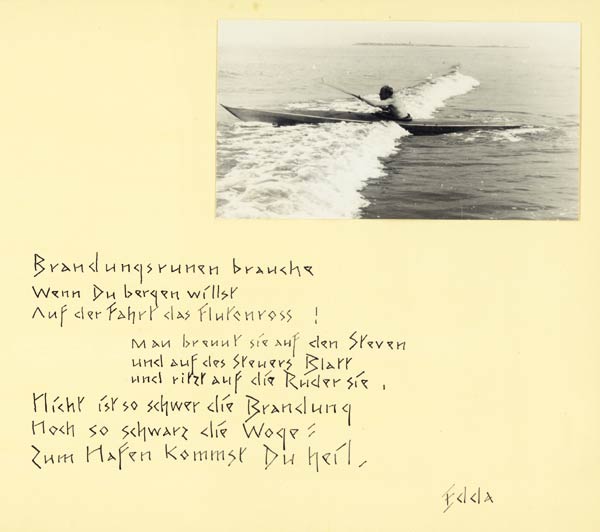 Brandungsrunen brauche
Wenn Du bergen willst
Auf der Fahrt das Flutenross !
Man brennt sie auf den Steven
und auf des Steuers Blatt
und ritzt auf die Ruder sie ,
Nicht ist so schwer die Brandung
Noch so schwarz die Woge =
Zum Hafen kommst Du heil,
Edda